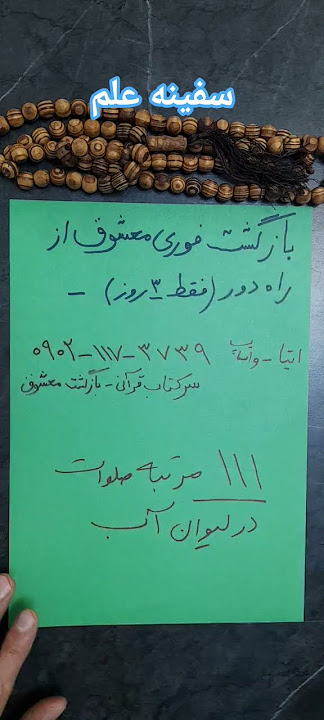 سفینه علم
بازگشت فوری معشوق از
راه دور (فقط ۳ روز) -
ایتا - واتساپ ۰۹۰۲-۱۱۷-۳۷۳۹
سرکتاب قرآنی - بازگشت معشوق
۱۱۱ مرتبه صلوات
در لیوان آب